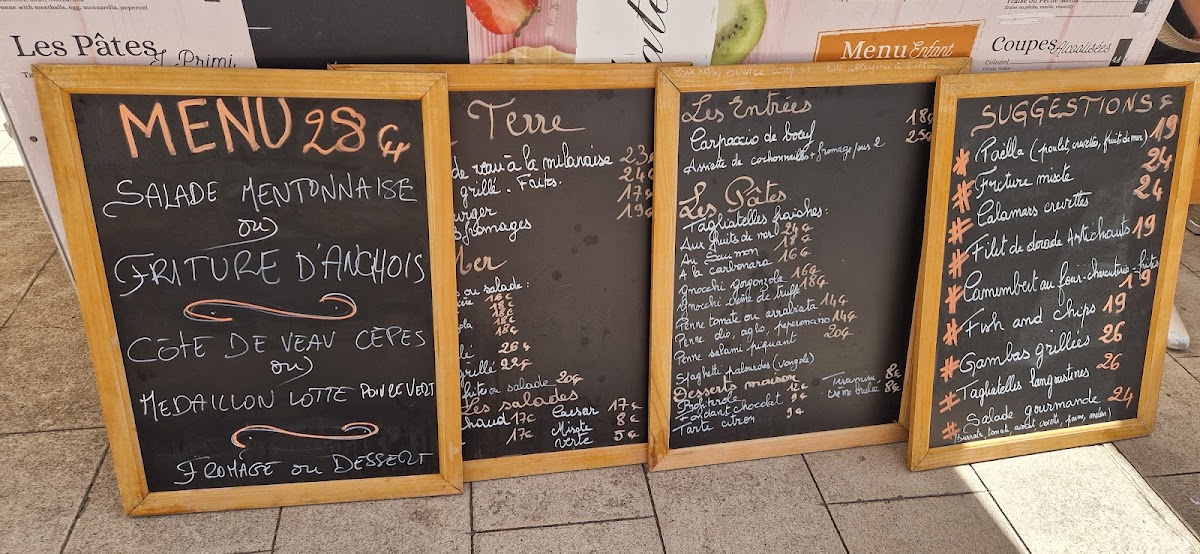 ne with meatballs, egg, mozzarella, peperoni
Les Pâtes
I Primi
Menu Enfant
Coupes Alcoolisées
Colonel
MENU 28€
SALADE MENTONNAISE
ou
FRITURE D'ANCHOIS
CÔTE DE VEAU CÈPES
ou
MEDAILLON LOTTE POIVRE VERT
FROMAGE ou DESSERT
Terre
de veau à la milanaise 23€
grillé . Faits. 24€
urger 17€
3 fromages 19€
Mer
s ou salade :
16€
18€
18€
18€
18€
26€
grillé 22€
frite ou salade 20€
Les salades
chaud 17€ Caesar 17€
17€ Mixte 8€
verte 5€
Les Entrées
Carpaccio de bœuf 18€
Assiette de cochonnailles + fromage pour 2 25€
Les Pâtes
Tagliatelles fraiches :
Aux fruits de mer 24€
Au Saumon 18€
A la carbonara 16€
Gnocchi gorgonzola 16€
Gnocchi crème de truffe 18€
Penne tomate ou arrabiata 14€
Penne olio, aglio, peperoncino 14€
Penne salami piquant
Spaghetti palourdes (vongole) 20€
Desserts maison
Profiterole 12€
Fondant chocolat 9€
Tarte citron 9€
Tiramisu 8€
Crème brulée 8€
SUGGESTIONS €
* Paëlla (poulet, crevette, fruits de mer) 19
* Friture mixte 24
* Calamars crevettes 24
* Filet de dorade Artichauts 19
* Camembert au four - charcuterie - frites 19
* Fish and chips 19
* Gambas grillées 26
* Tagliatelles langoustines 26
* Salade gourmande 24
(burrata, tomate, avocat, crevette, pomme, melon)